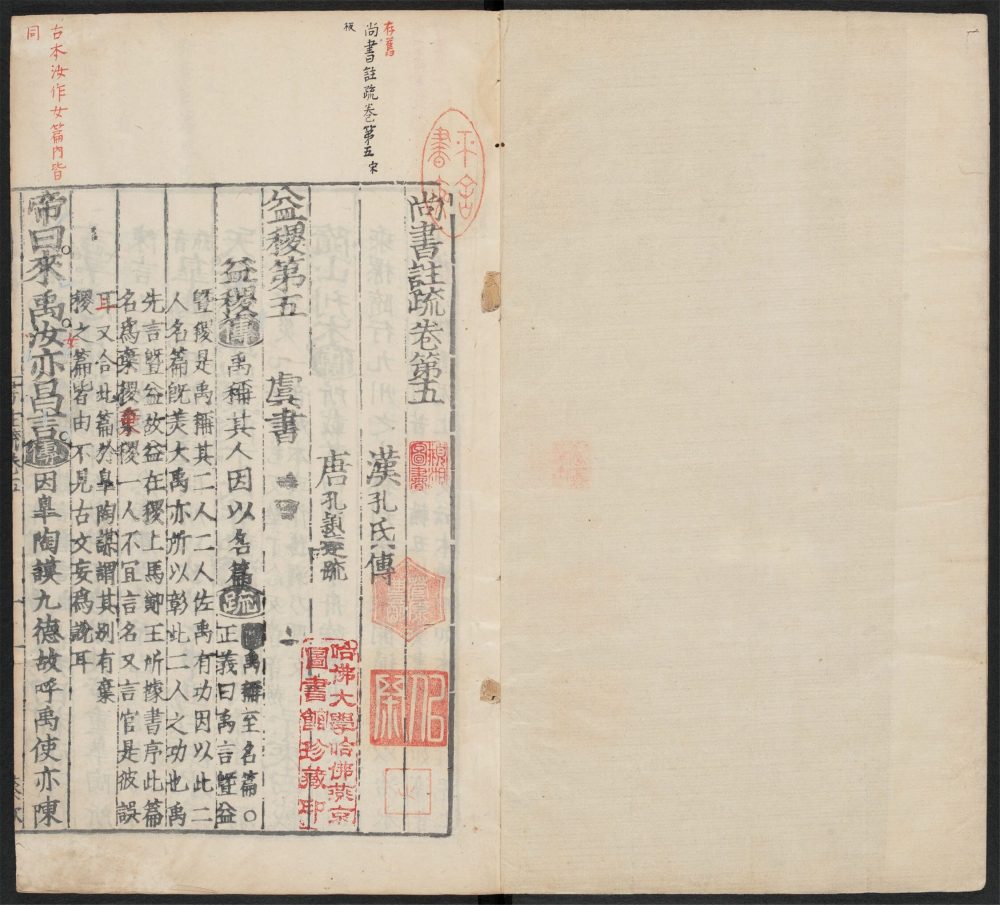 存舊
尚書註疏卷第五宋
板
古本汝作女篇内皆
同
尚書註疏卷第五
漢孔氏傳
唐孔穎達疏
益稷第五 虞書
益稷傳禹稱其人因以名篇疏禹稱至名篇○
正義曰禹言曁益
曁稷是禹稱其二人二人佐禹有功因以此二
人名篇既美大禹亦所以彰此二人之功也禹
先言曁益故益在稷上馬鄭王所據書序此篇
名爲棄稷棄稷一人不宜言名又言官是彼誤
耳又合此篇於皋陶謀謂其別有棄
稷之篇皆由不見古文妄爲說耳
帝曰來禹汝亦昌言傳因皋陶謨九德故呼禹使亦陳
女
哈佛大學哈佛燕京
圖書館珍藏印